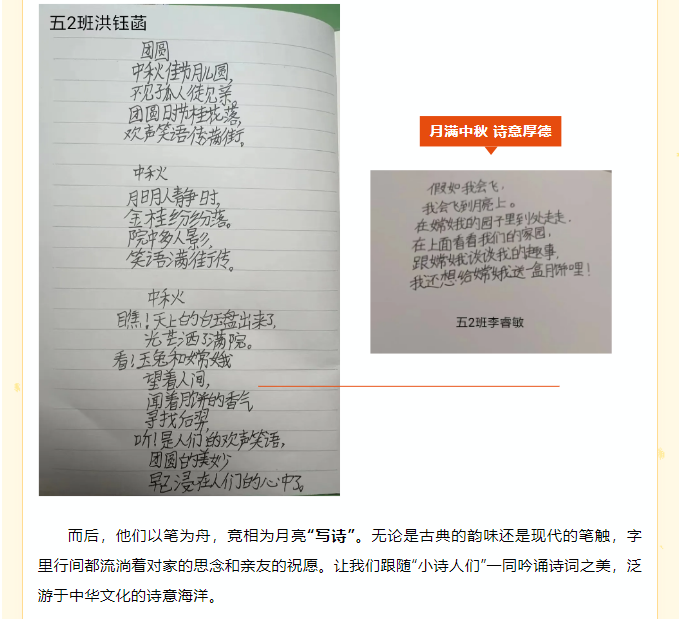 五2班洪钰菡
团圆
中秋佳节月儿圆，
不见孤人徒见亲。
团圆日节桂花落，
欢声笑语传满街。
中秋
月明人静时，
金桂纷纷落。
院中多人影，
笑语满街传。
中秋
瞧！天上的白玉盘出来了，
光芒洒了满院。
看！玉兔和嫦娥
望着人间，
闻着月饼的香气
寻找后羿，
听！是人们的欢声笑语，
团圆的美妙
早已浸在人们的心中了。
月满中秋 诗意厚德
假如我会飞，
我会飞到月亮上。
在嫦娥的园子里到处走走，
在上面看看我们的家园，
跟嫦娥谈谈我的趣事，
我还想给嫦娥送一盒月饼哩！
五2班李睿敏
而后，他们以笔为舟，竞相为月亮“写诗”。无论是古典的韵味还是现代的笔触，字
里行间都流淌着对家的思念和亲友的祝愿。让我们跟随“小诗人们”一同吟诵诗词之美，泛
游于中华文化的诗意海洋。